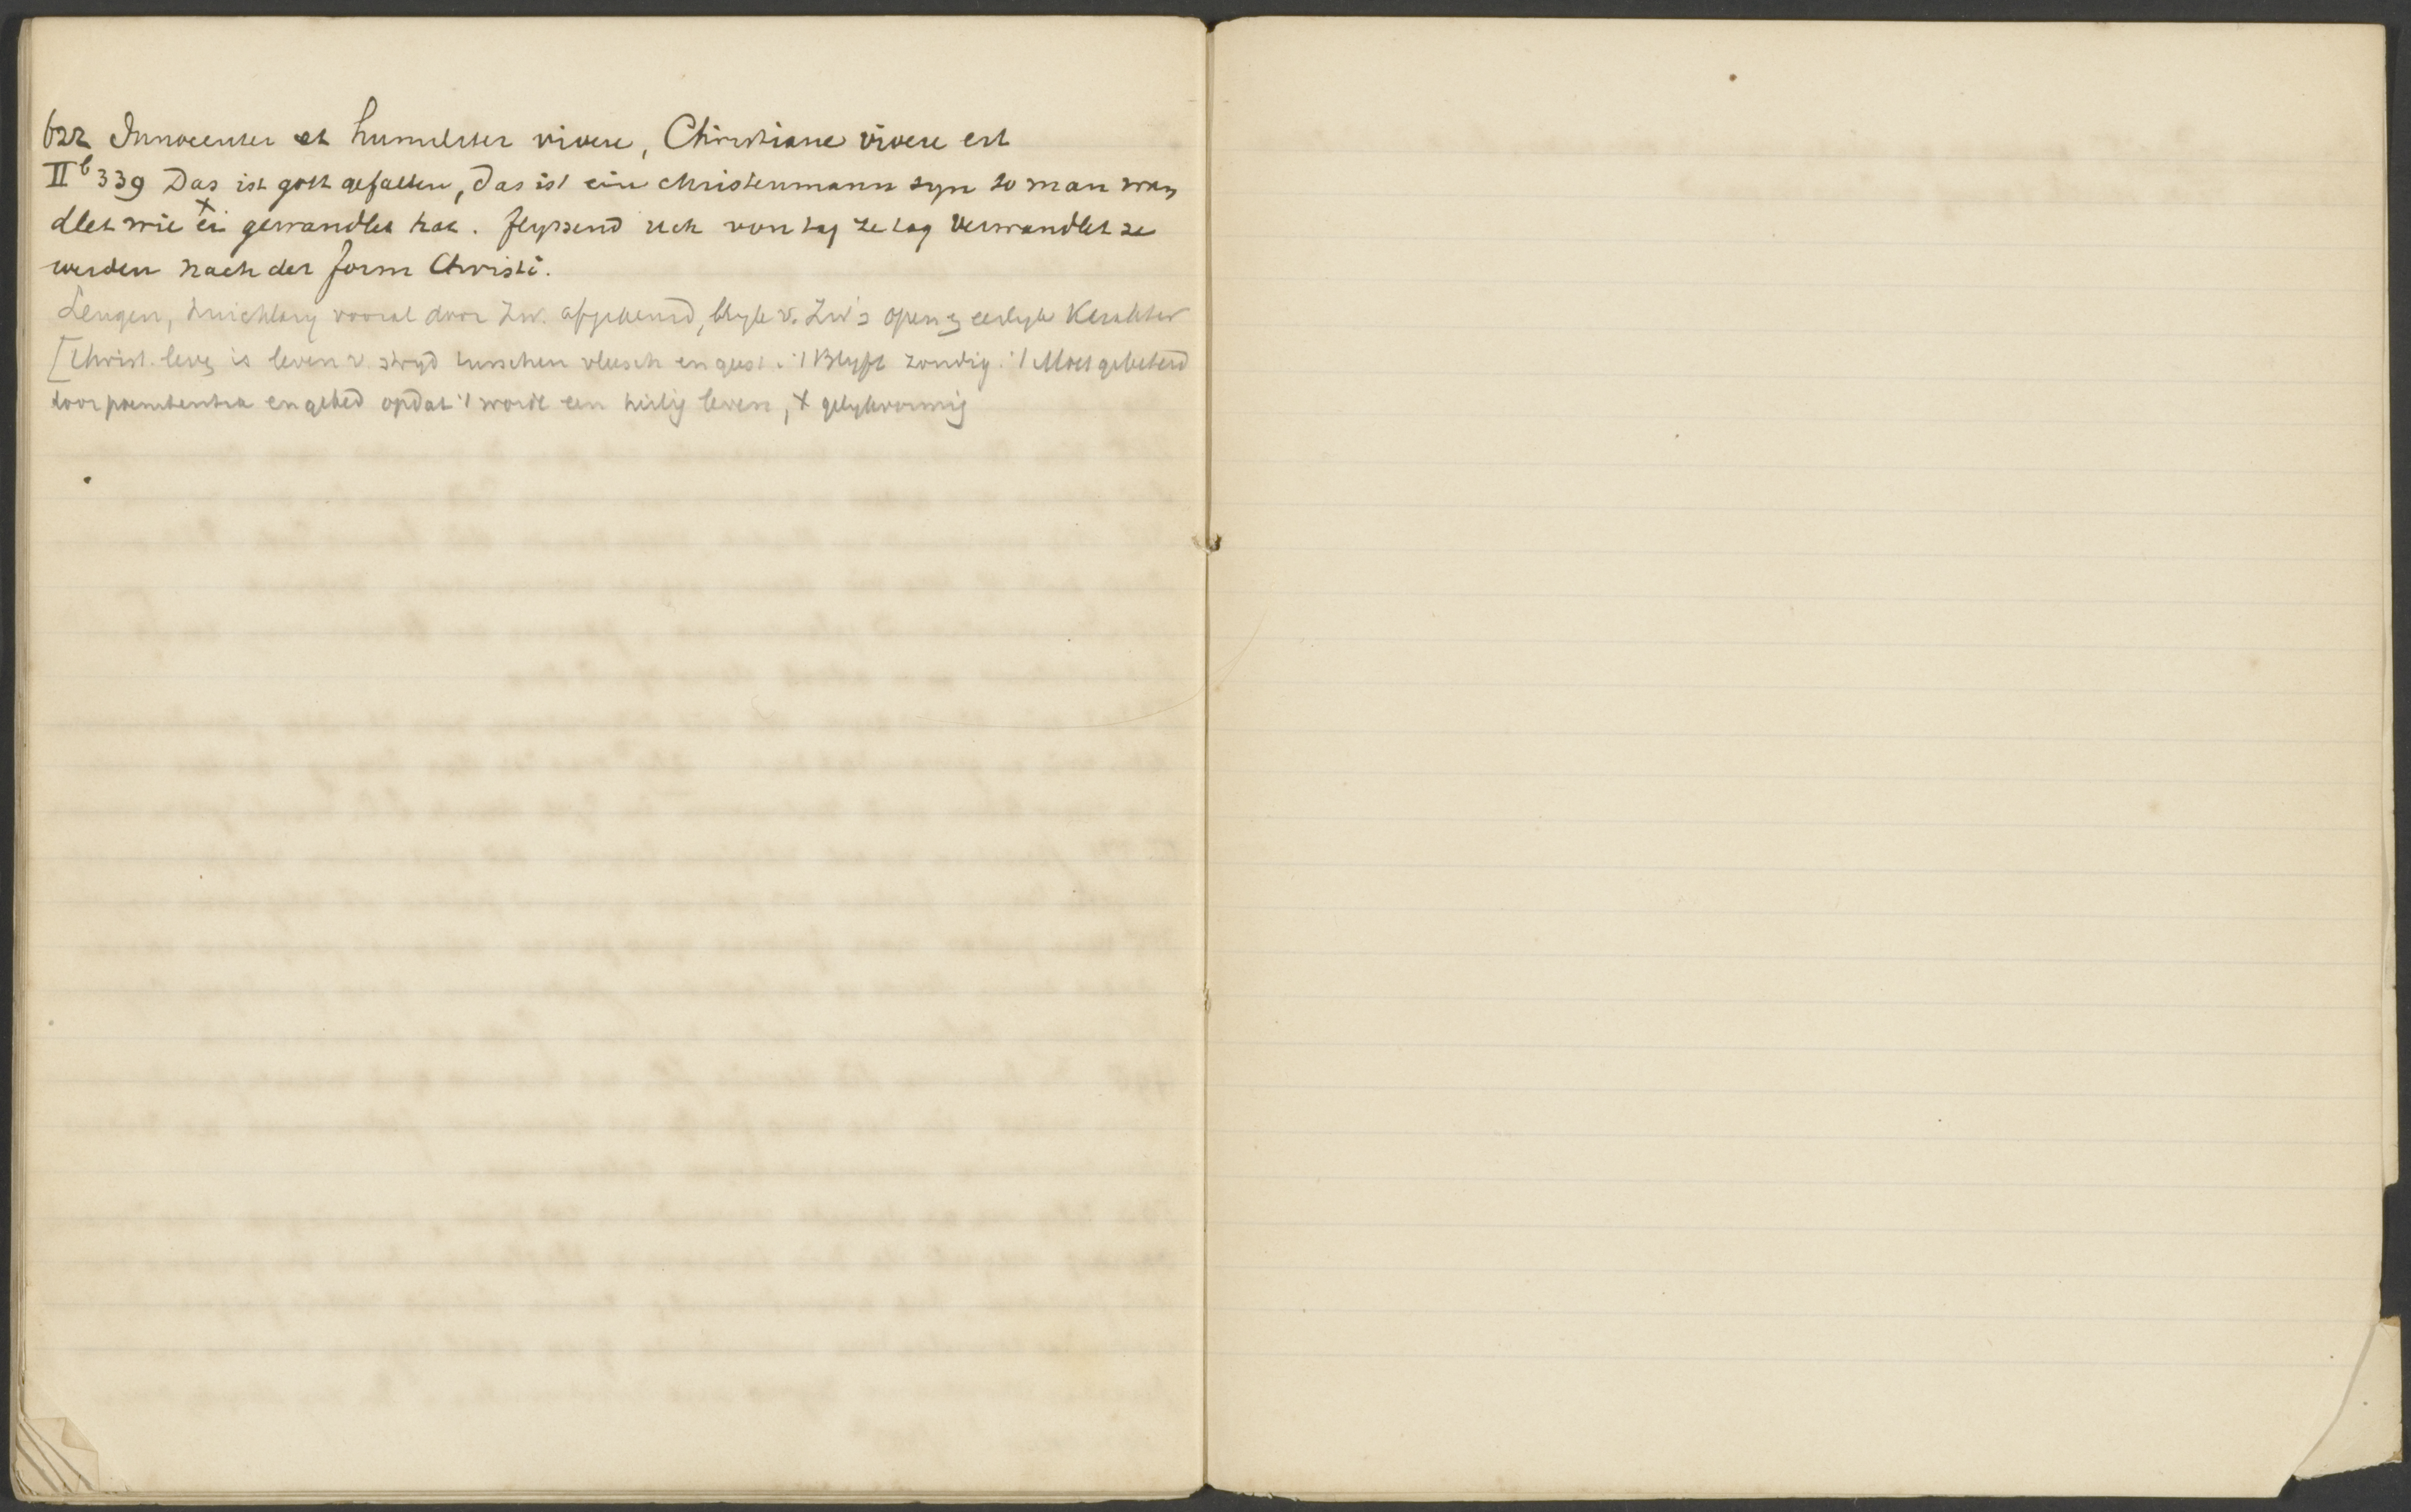 622 Innocenter et humiliter vivere, Christiane vivere est
II b 339 Das ist gott gefallen, das ist ein christenmann syn so man wan
dlet wie er gewandlet hat. flyssend sich von tag ze tag verwandlet ze
x
werden nach der form Christi.
Leugen, huichlary vooral door Zw. afgekeurd, blyk v. Zw's open en eerlyk Karakter
[Christ. leven is leven v. stryd tusschen vleesch en geest. 't Blyft zondig. 't Moet gebeterd
door poenitentia en gebed opdat 't worde een heilig leven, X gelykvormig